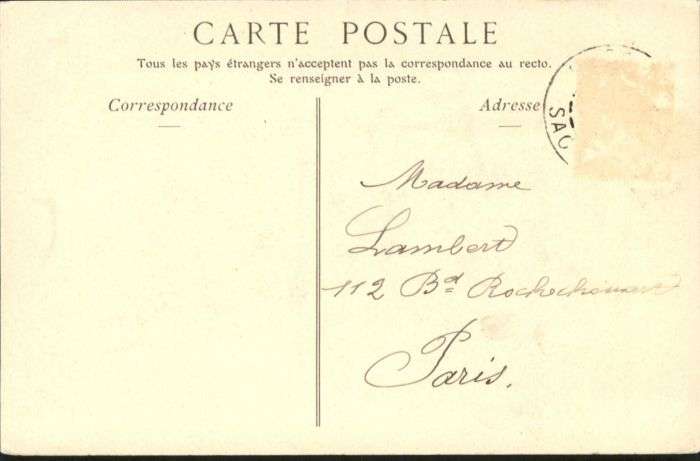 CARTE POSTALE
Tous les pays étrangers n'acceptent pas la correspondance au recto.
Se renseigner à la poste.
Correspondance
Adresse
SAC
Madame
Lambert
112 Bd Rochechouart
Paris.